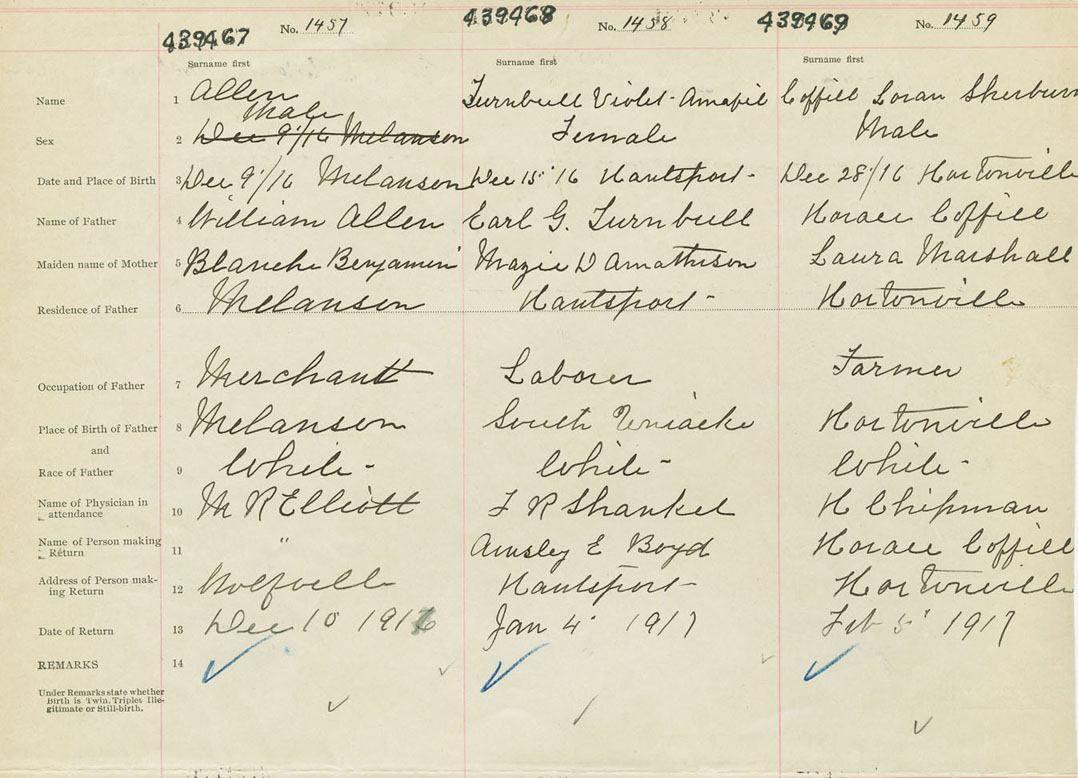 439467 No. 1457 439468 No. 1458 439469 No. 1459
Surname first Surname first Surname first
Name 1 Allen Turnbull Violet Coffill Loran Sherburn
Male
Sex 2 Dec 9/16 Melanson Female Male
Date and Place of Birth 3 Dec 9/16 Melanson Dec 15 '16 Hantsport Dec 28/16 Hortonville
Name of Father 4 William Allen Earl G. Turnbull Horace Coffill
Maiden name of Mother 5 Blanche Benjamin Mazie D Laura Marshall
Residence of Father 6 Melanson Hantsport Hortonville
Occupation of Father 7 Merchant Laborer Farmer
Place of Birth of Father 8 Melanson South Uniacke Hortonville
and
Race of Father 9 White - White - White -
Name of Physician in
attendance 10 M R Elliott F R Shankel H Chipman
Name of Person making
Return 11 " Amsley E Boyd Horace Coffill
Address of Person mak-
ing Return 12 Wolfville Hantsport Hortonville
Date of Return 13 Dec 10 1916 Jan 4 1917 Feb 5 1917
REMARKS 14
Under Remarks state whether
Birth is Twin, Triplet Ille-
gitimate or Still-birth.